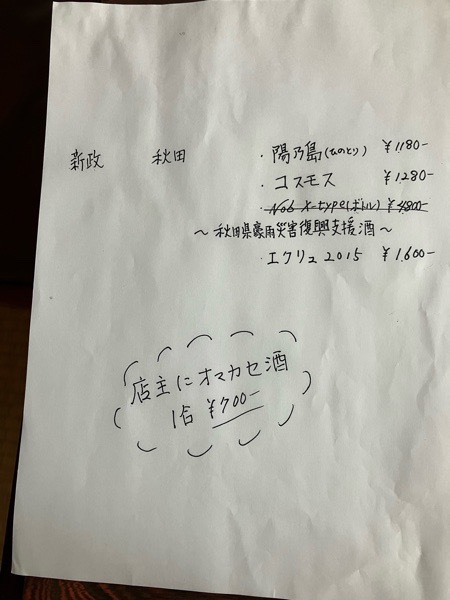 新政 秋田 ・陽乃鳥(ひのとり) ¥1,180-
・コスモス ¥1280-
・No6 X-type(ボトル) ¥4,800-
〜秋田県豪雨災害復興支援酒〜
・エクリュ 2015 ¥1,600-
店主にオマカセ酒
1合 ¥700-